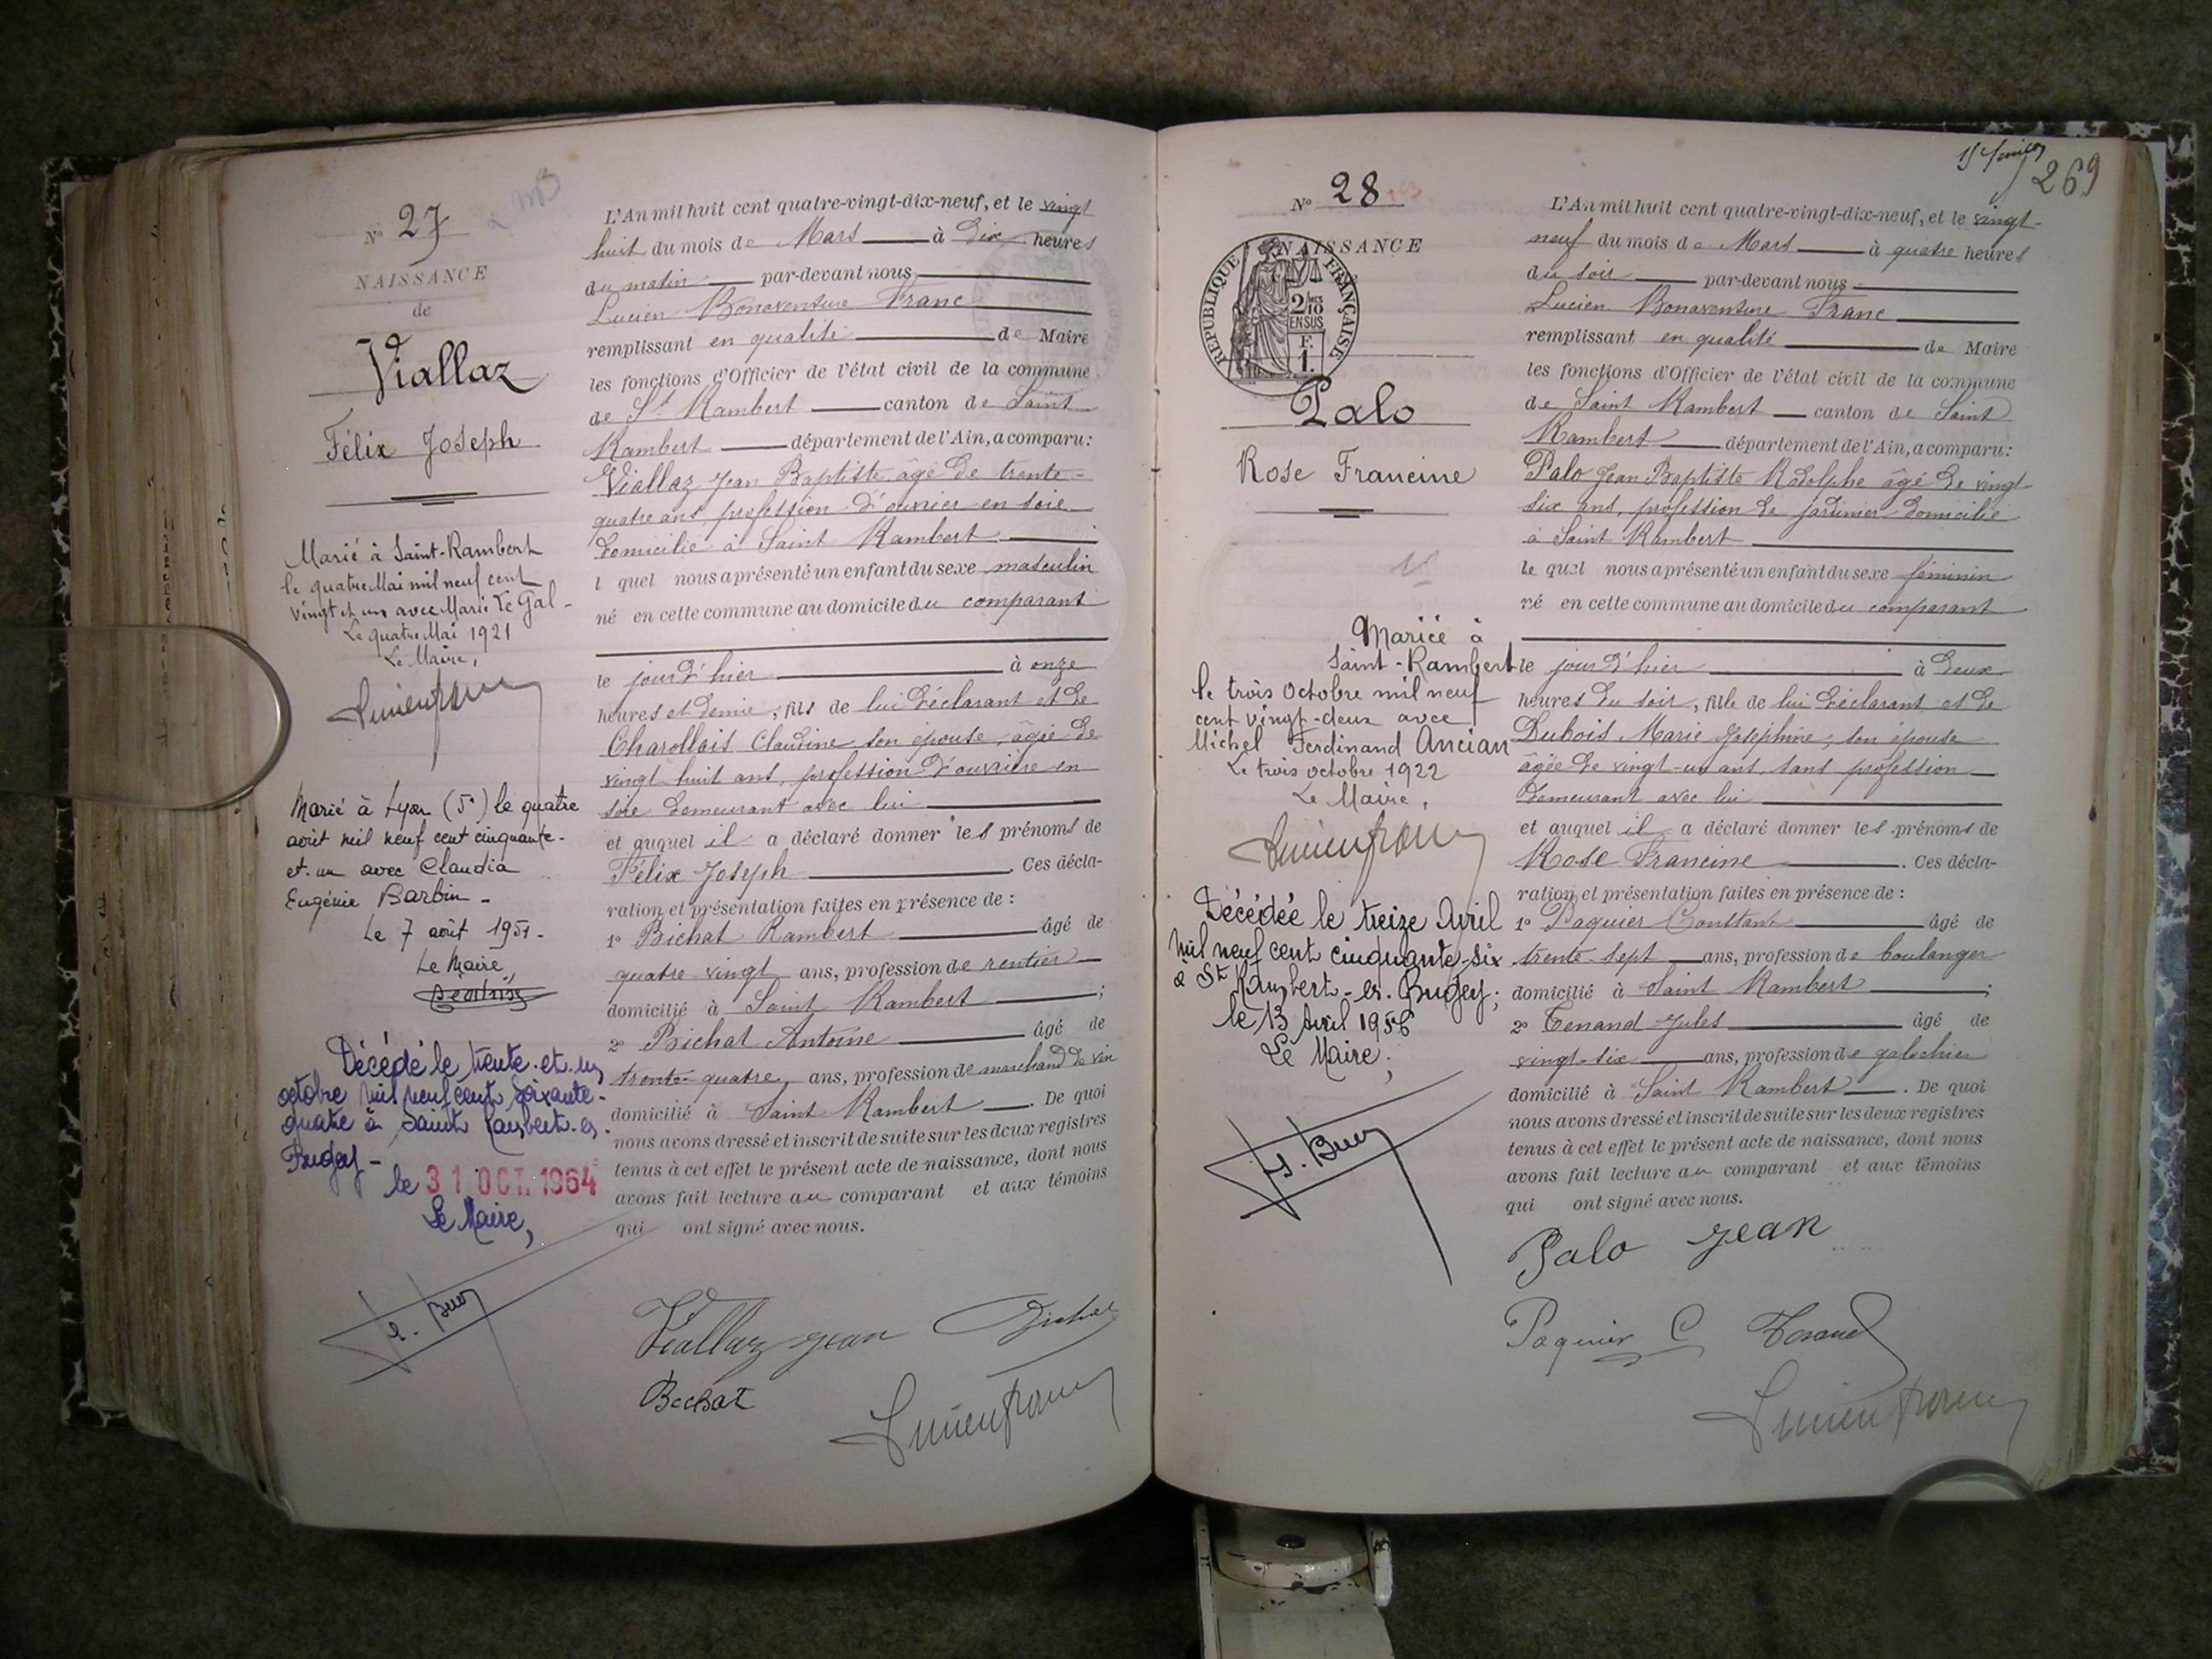 Nº 27
NAISSANCE
de
Viallaz
Félix Joseph
Marié à Saint-Rambert
le quatre Mai mil neuf cent
vingt et un avec Marie Le Gal-
Le quatre Mai 1921
Le Maire,
Marié à Lyon (5e) le quatre
août mil neuf cent cinquante-
et-un avec Claudia
Eugénie Barbin -
Le 7 août 1951-
Le Maire,
Décédé le trente-et-un
octobre mil neuf cent soixante-
quatre à Saint Rambert-en-
Bugey-
le 31 OCT. 1964
Le Maire,
L'An mil huit cent quatre-vingt-dix-neuf, et le vingt
huit du mois de Mars à dix heures
du matin par-devant nous
Lucien Bonaventure Franc
remplissant en qualité de Maire
les fonctions d'Officier de l'état civil de la commune
de St Rambert canton de Saint
Rambert département de l'Ain, a comparu:
Viallaz Jean Baptiste âgé de trente-
quatre ans, profession d'ouvrier en soie
domicilié à Saint Rambert
l quel nous a présenté un enfant du sexe masculin
né en cette commune au domicile du comparant
le jour d'hier à onze
heures et demie, fils de lui déclarant et de
Charollais Claudine, son épouse, âgée de
vingt huit ans, profession d'ouvrière en
soie demeurant avec lui
et auquel il a déclaré donner les prénoms de
Félix Joseph. Ces décla-
ration et présentation faites en présence de :
1º Bichat Rambert âgé de
quatre-vingt ans, profession de rentier
domicilié à Saint Rambert ;
2º Bichat Antoine âgé de
trente-quatre ans, profession de marchand de vin
domicilié à Saint Rambert. De quoi
nous avons dressé et inscrit de suite sur les deux registres
tenus à cet effet le présent acte de naissance, dont nous
avons fait lecture au comparant et aux témoins
qui ont signé avec nous.
Viallaz Jean Bichat
Bichat
Lucien Franc
269
Nº 28
NAISSANCE
RÉPUBLIQUE FRANÇAISE
2/10 MES
EN SUS
F.
1.
Palo
Rose Francine
Mariée à
Saint-Rambert
le trois Octobre mil neuf
cent vingt-deux avec
Michel Ferdinand Ancian
Le trois octobre 1922
Le Maire,
Lucien Franc
Décédée le treize Avril
mil neuf cent cinquante-six
à St Rambert-en-Bugey;
le 13 Avril 1956
Le Maire;
L'An mil huit cent quatre-vingt-dix-neuf, et le vingt-
neuf du mois de Mars à quatre heures
du soir par-devant nous
Lucien Bonaventure Franc
remplissant en qualité de Maire
les fonctions d'Officier de l'état civil de la commune
de Saint Rambert canton de Saint
Rambert département de l'Ain, a comparu:
Palo Jean Baptiste Rodolphe âgé de vingt-
six ans, profession de jardinier domicilié
à Saint Rambert
le quel nous a présenté un enfant du sexe féminin
né en cette commune au domicile du comparant
le jour d'hier à deux
heures du soir, fille de lui déclarant et de
Dubois Marie Joséphine, son épouse
âgée de vingt-un ans, sans profession
demeurant avec lui
et auquel il a déclaré donner les prénoms de
Rose Francine. Ces décla-
ration et présentation faites en présence de :
1º Paquier Constant âgé de
trente-sept ans, profession de boulanger
domicilié à Saint Rambert ;
2º Tenand Jules âgé de
vingt-six ans, profession de galochier
domicilié à Saint Rambert. De quoi
nous avons dressé et inscrit de suite sur les deux registres
tenus à cet effet le présent acte de naissance, dont nous
avons fait lecture au comparant et aux témoins
qui ont signé avec nous.
Palo Jean
Paquier C Tenand
Lucien Franc